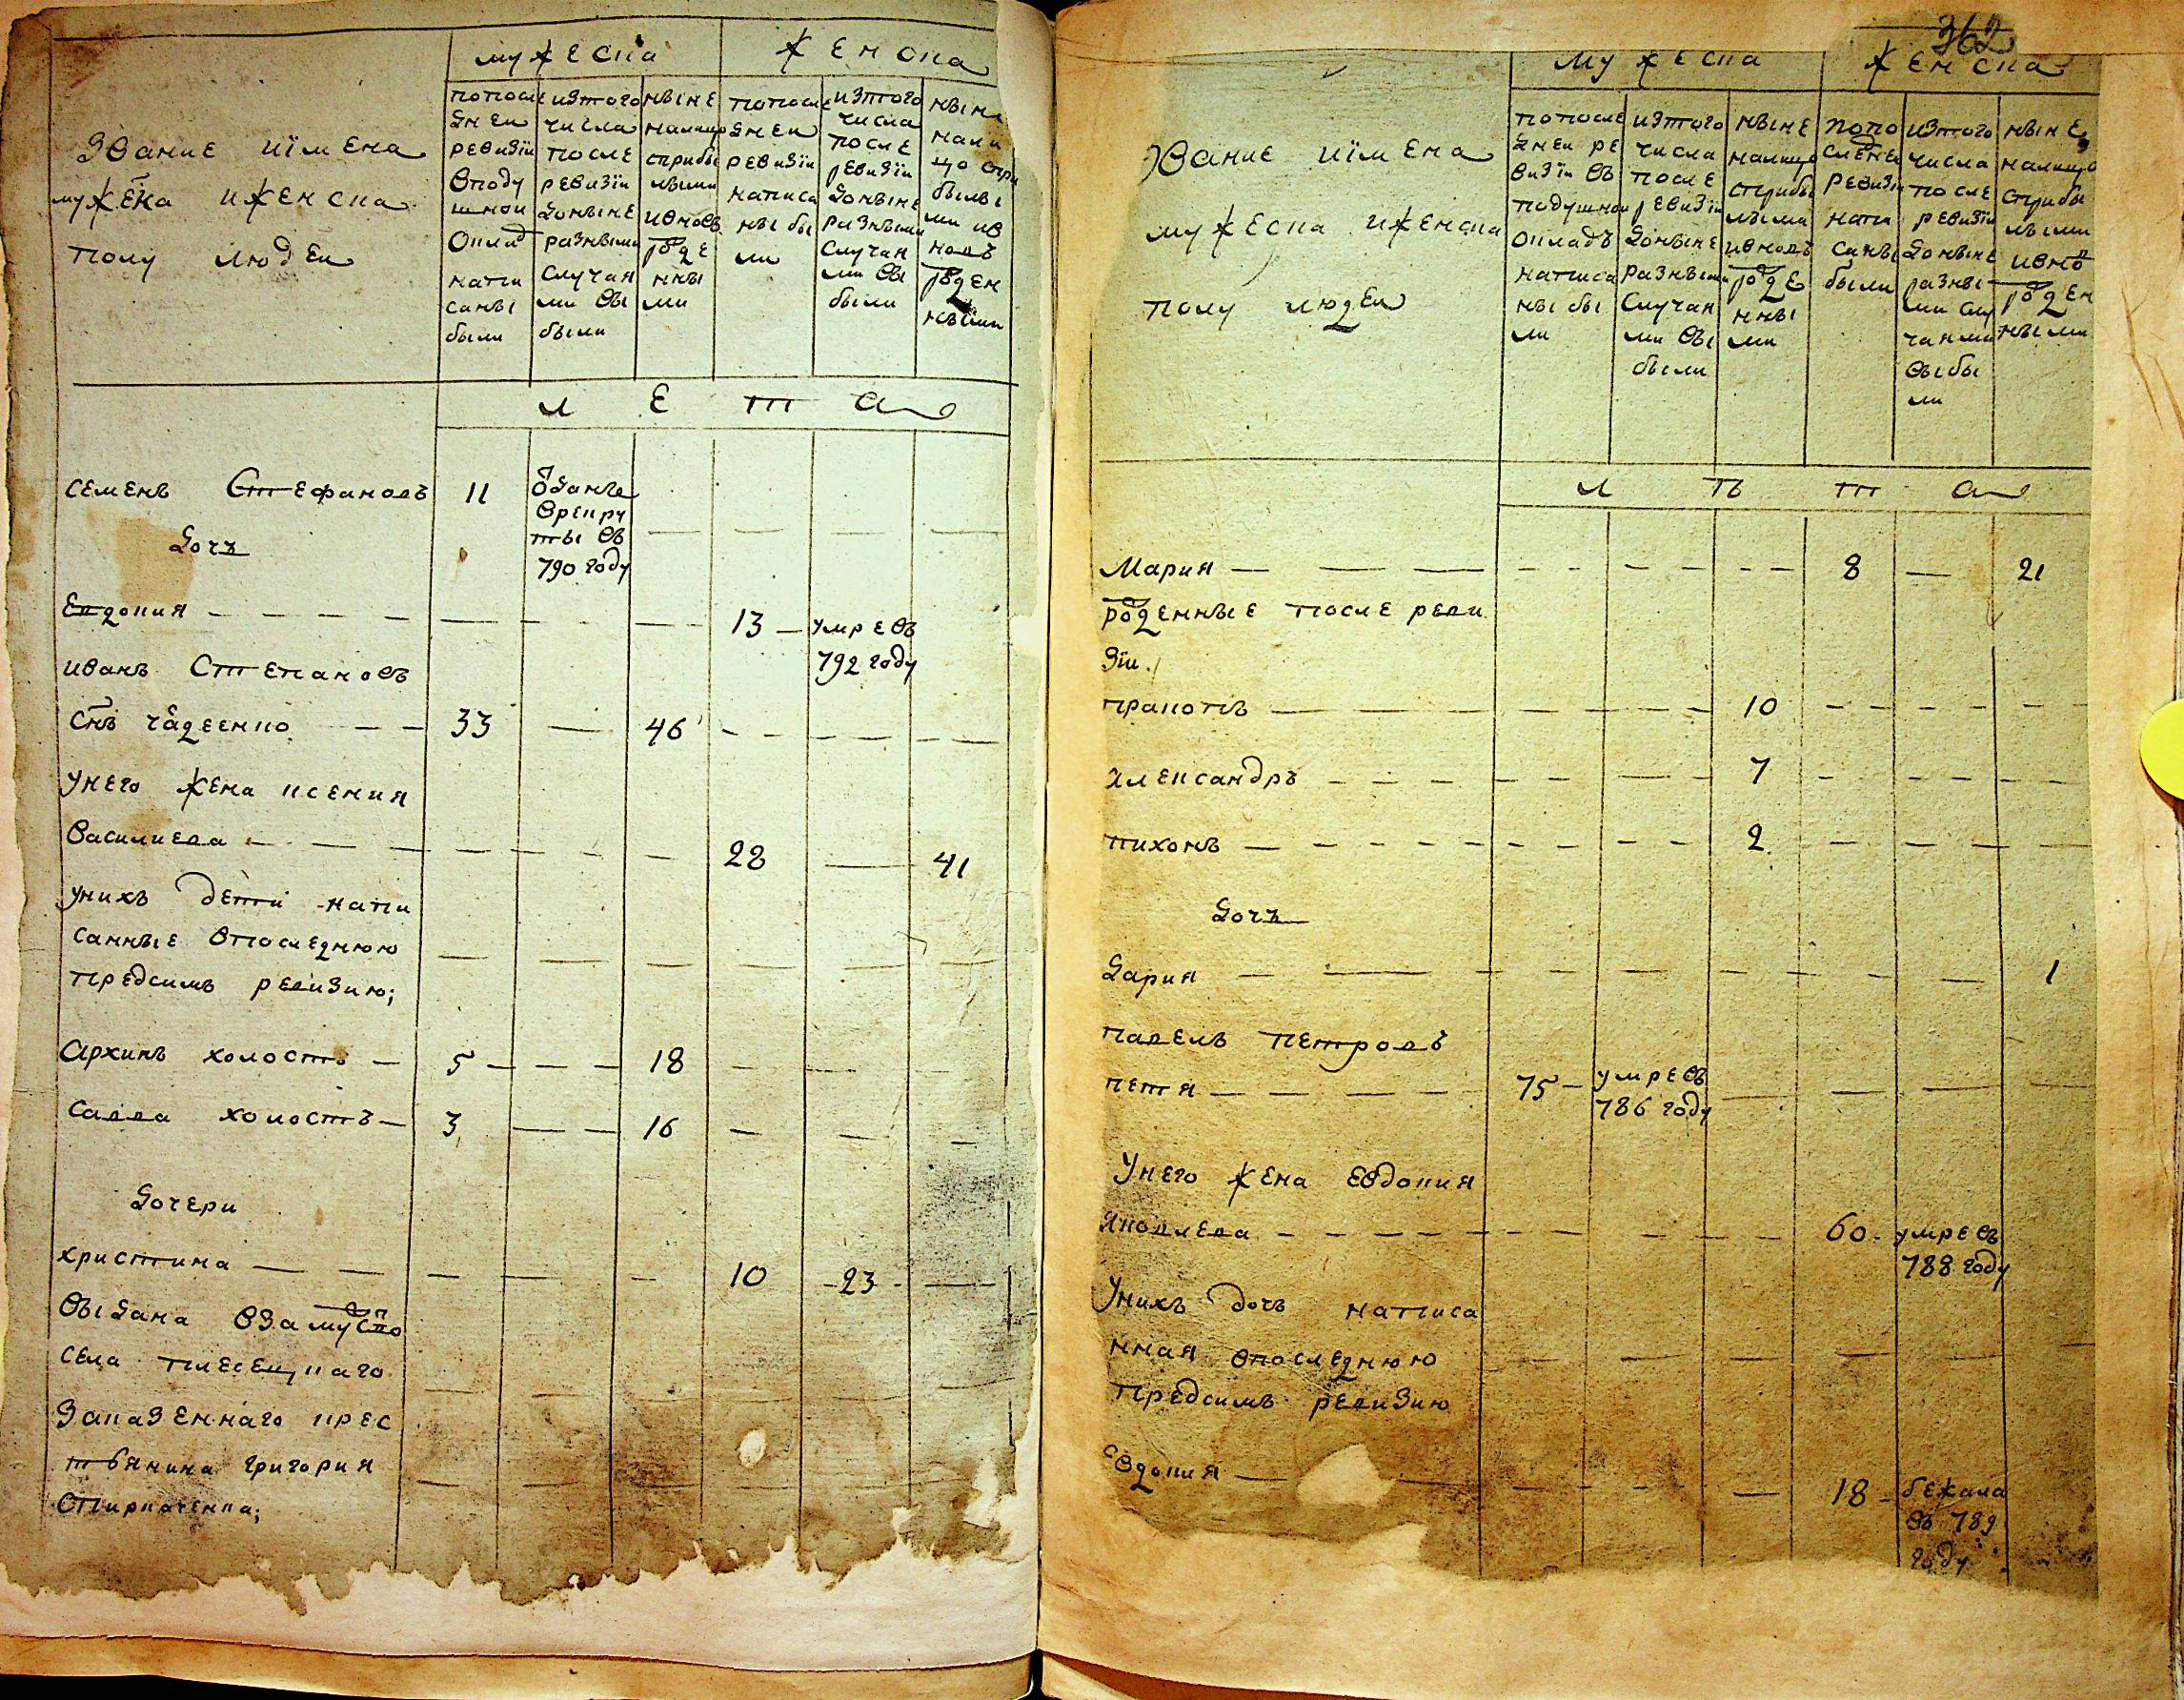 362
мужеска
женска
Звание иімена
мужека иженска
полу людеи
попосле
днеи
ревизїи
вподу
шнои
оклад
напи
саны
были
изтого
числа
после
ревизїи
доныне
разными
случая
ми вы
были
ныне
налицо
сприбы
лыми
ивновь
рожде
нны
ми
попосле
днеи
ревизїи
написа
ны бы
ли
изтого
числа
после
ревизїи
доныне
разными
случая
ми вы
были
ныне
нали
цо спри
былы
ми ив
новь
рожден
ными
л е т а
семенъ Стефановъ 11 отданъ
врекру
ты въ
790 году
дочь
Евдокия 13 умре въ
792 году
иванъ Степановъ
снъ чадеенко 33 46
унего жена ксения
Василиева 28 41
унихъ дети напи
санные впоследнюю
предсимъ ревизию;
Архипъ холостъ 5 18
Савва холостъ 3 16
дочери
христина 10 23
выдана взамуство
села плесецкаго
Заказеннаго крес
тьянина григория
Спиркаченка;
мужеска
женска
Звание иімена
мужеска иженска
полу людеи
попосле
днеи ре
визїи въ
подушнои
окладъ
написа
ны бы
ли
изтого
числа
после
ревизїи
доныне
разными
случая
ми вы
были
ныне
налицо
сприбы
лыми
ивновь
рожде
нны
ми
попо
следнеи
ревизїи
напи
саны
были
изтого
числа
после
ревизїи
доныне
разны
ми слу
чаями
выбы
ли
ныне
налицо
сприбы
лыми
ивно
рожден
ными
л ѣ т а
Мария 8 21
рожденные после реви
зїи
пракопъ 10
александръ 7
тихонъ 2
дочь
дария 1
павелъ петровъ
петя 75 умре въ
786 году
Унего жена Евдокия
яковлева 60 умре въ
788 году
Унихъ дочь написа
нная впоследнюю
предсимъ ревизию
евдокия 18 бежала
въ 789
году